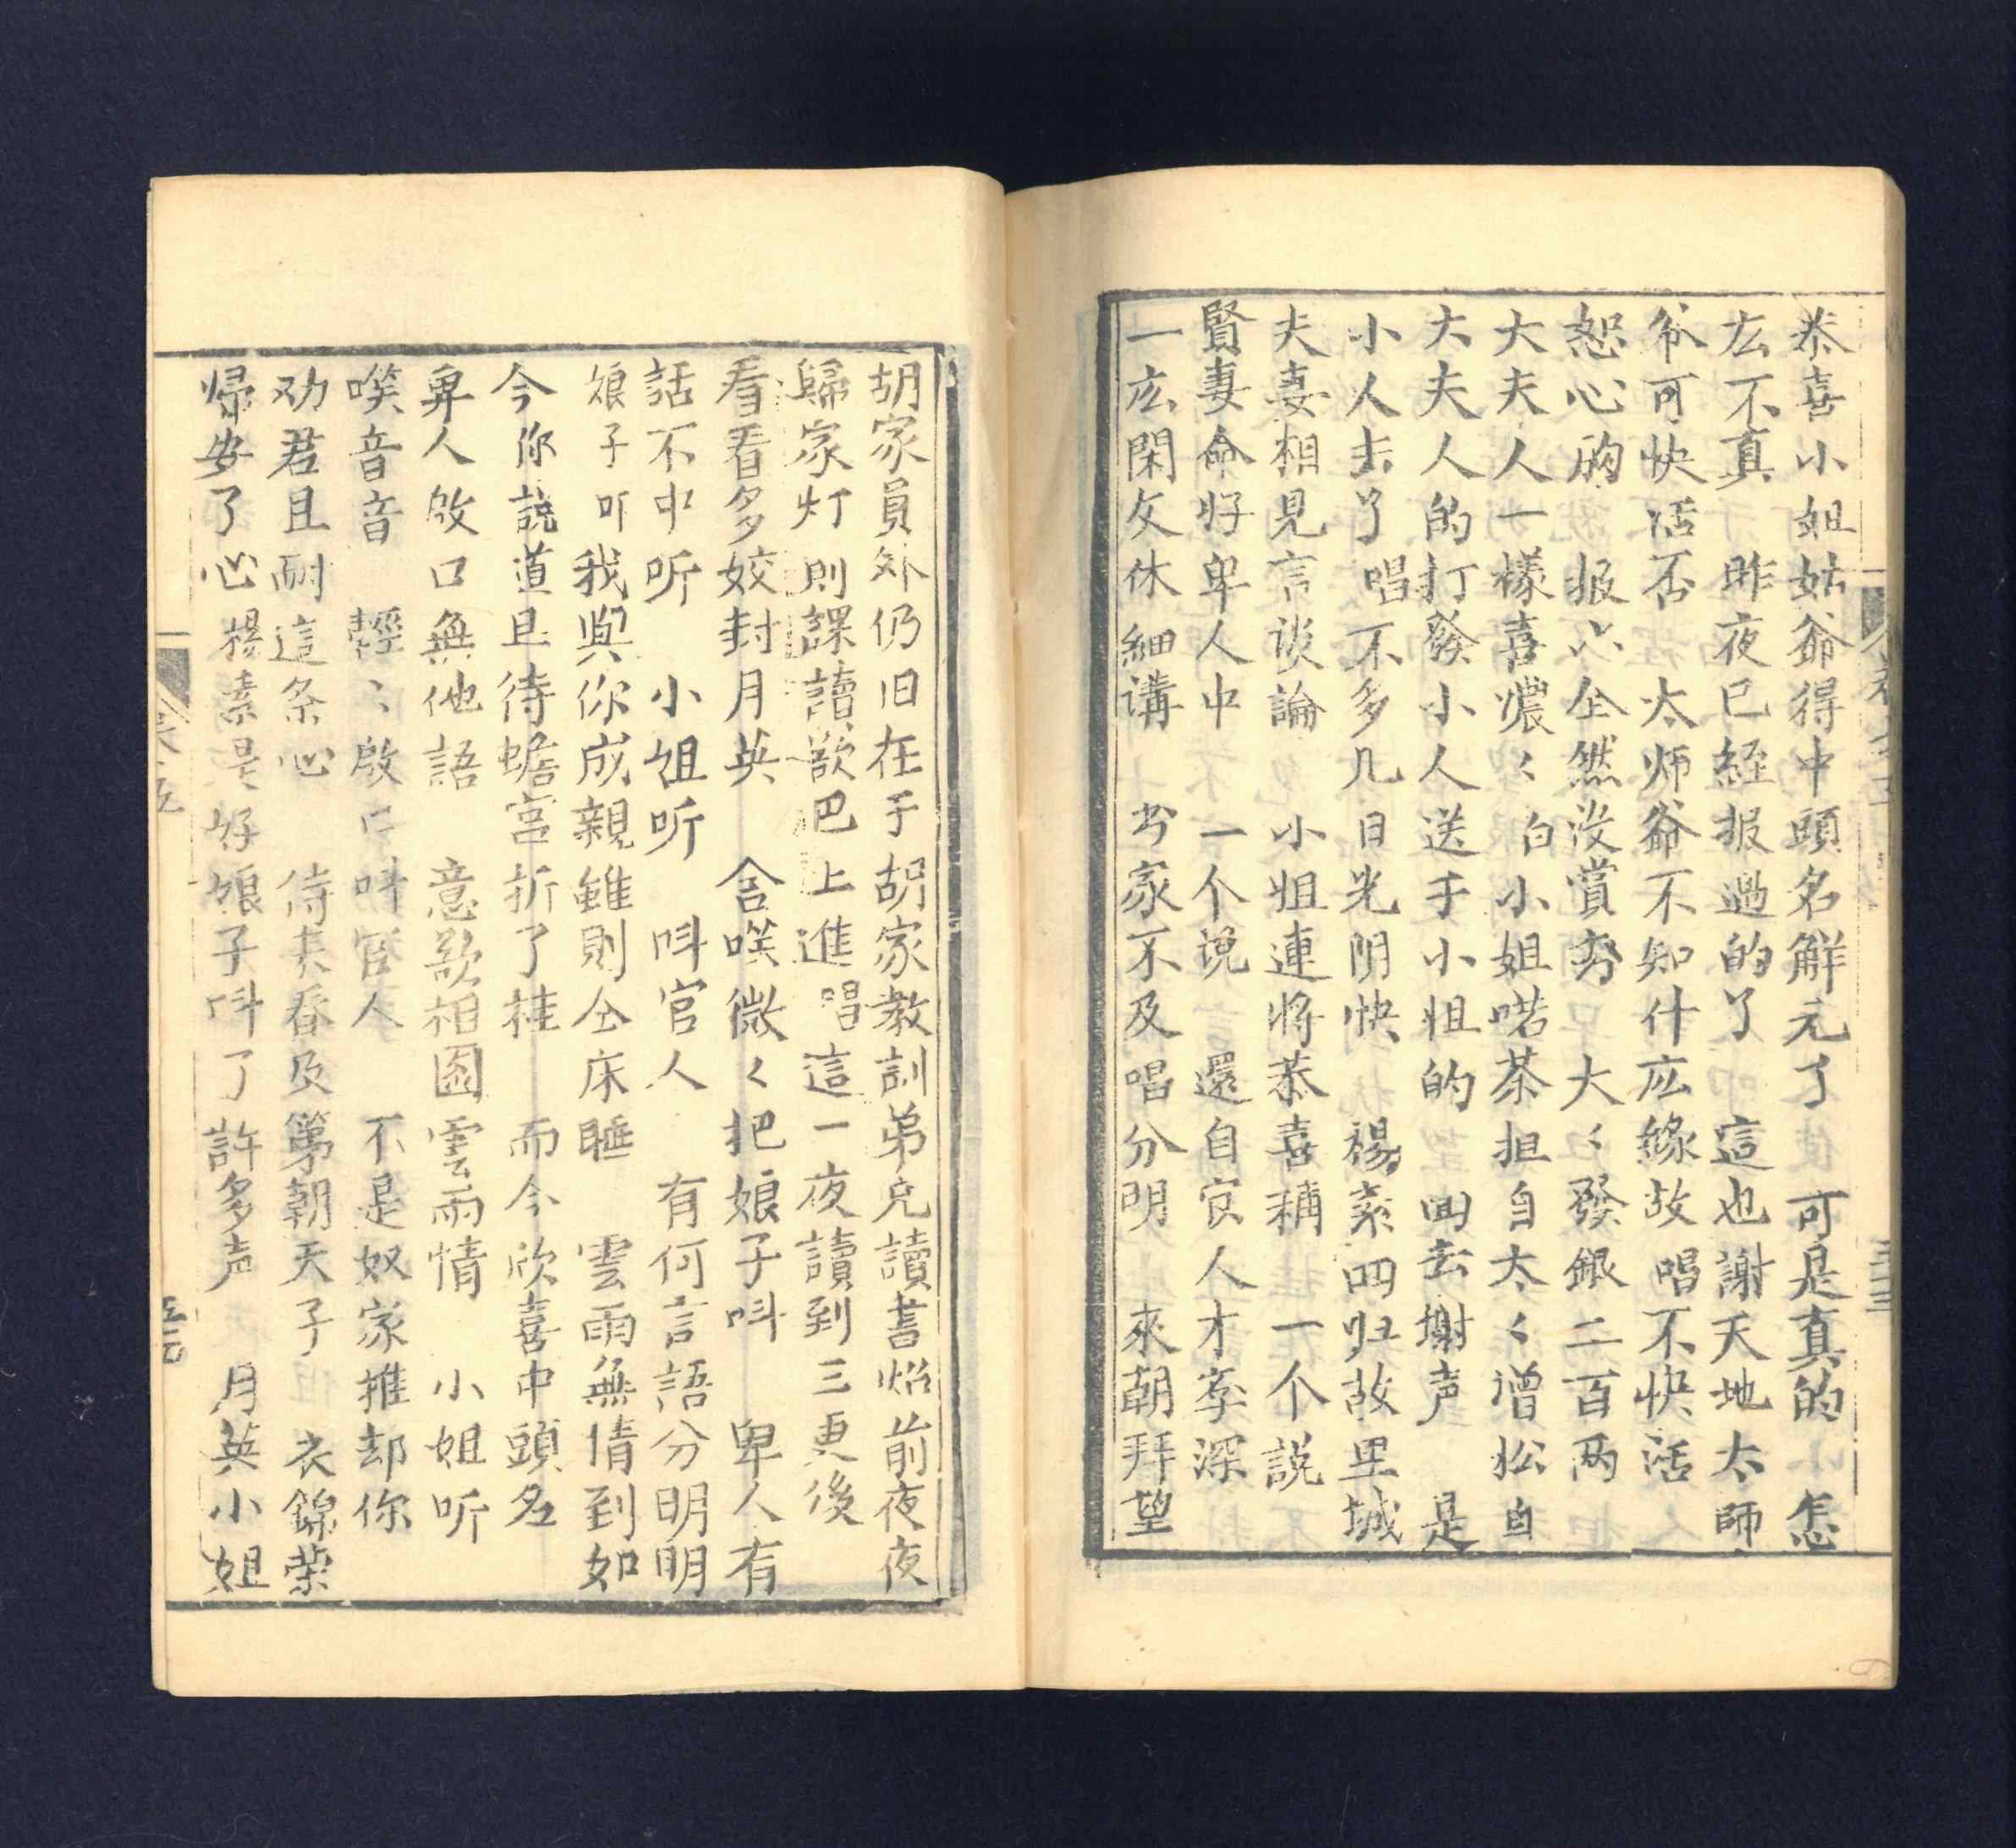 恭喜小姐姑爺得中頭名觧元了 可是真的 怎
広不真 昨夜已経报過的了 這也謝天地太師
爷可快活否 太师爺不知什広緣故 唱 不快活
恕心的 报六仝然没賞劳 大〻發銀二百两
大夫人一樣喜濃〻 白 小姐喏茶担自太〻 松自
大夫人的打發小人送于小姐的 回去 谢声 是
小人去了 唱 不多几日光阴快 楊素回归故里城
夫妻相見言谈論 小姐連将恭喜稱 一个説
賢妻命好卑人中 一个说 還自官人才李深
一広閑文休細講 书家不及唱分明 來朝拜望
胡家員外仍旧在于胡家教訓弟兄讀書 前夜夜
歸家灯則課讀欲巴上進 唱 這一夜讀到三更後
看看多姣封月英 含唉微〻把娘子呌 卑人有
話不中听 小姐听 呌官人 有何言語分明明
娘子吓 我與你成親雖則仝床睡 雲雨無情到如
今你說道且待蟾宮折了桂 而今欣喜中頭名
卑人啟口無他語 意欲相图雲雨情 小姐听
唉音音 輕〻啟口呌官人 不是奴家推却你
劝君且耐這条心 待来春及第朝天子 衣錦荣
帰安了心 楊素是好娘子呌了許多声 月英小姐